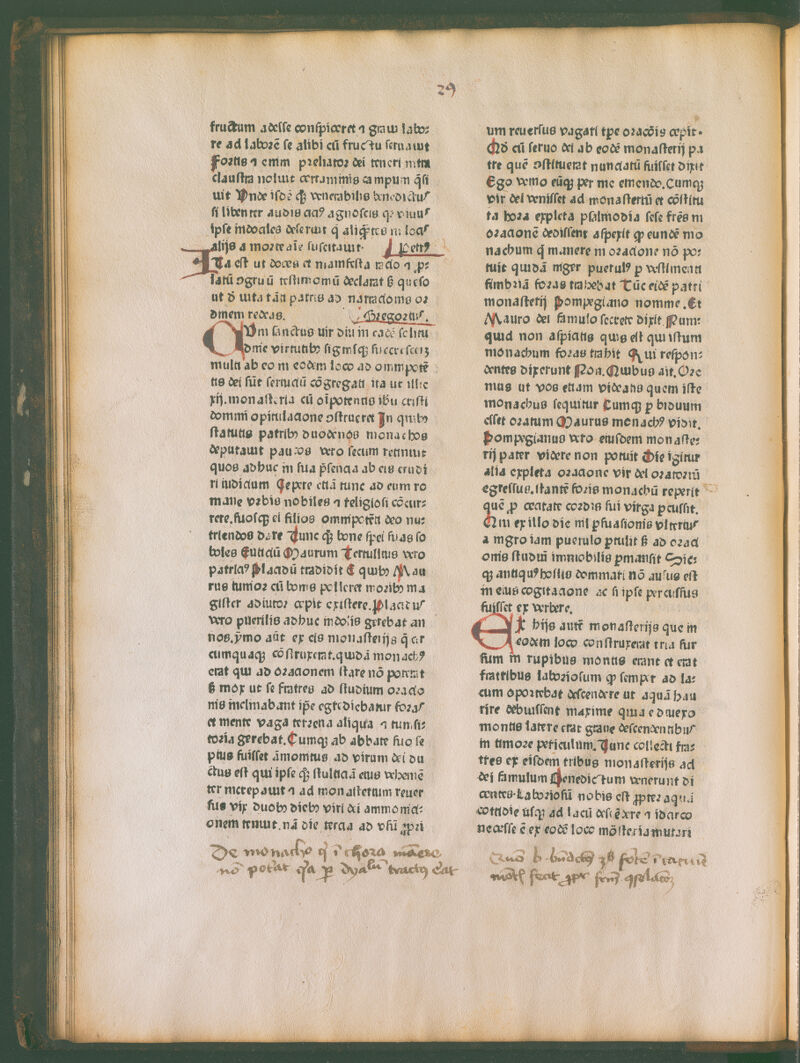 29
fructum adesse conspiceret ⁊ graui labo⸗
re ad laborē se alibi cū fructu seruauit
Fortis ⁊ enim preliator dei teneri intra
claustra noluit certaminis campum q̄si
uit Vnde isdē qꝫ venerabilis benedictuˢ
si libenter audis cit᷒ agnoscis qꝛ viuuˢ
ipse indociles deseruit q̄ aliq̄tos in locˢ
alijs a morte aīe suscitauit. Petr᷒
Ita est ut doces et manifesta racio ⁊ ꝓ⸗
latū ꝯgruū testimoniū declarat sꝫ queso
ut d̄ uita tāti patris ad narracionis or
dinem redeas. Gregorius.
Cvm sanctus uir diu in eadē solitu
dine virtutibꝫ signisqꝫ succresceret
multi ab eo in eodem loco ad omnipotē
tis dei sūt seruiciū cōgregati ita ut illic
xij. monasteria cū oīpotentis ihū cristi
domini opitulacione ꝯstrueret In quibꝫ
statutis patribꝫ duodenos monachos
deputauit paucos vero secum retinuit
quos adhuc in sua p̄sencia ab eis erudi
ri iudicium Cepere etiā tunc ad eum ro
mane vrbis nobiles ⁊ religiosi cōcur⸗
rere. suosqꝫ ei filios omnipotēti deo nu⸗
triendos dare Tunc qꝫ bone spei suas so
boles Euticiū Maurum Tertullius vero
patrici᷒ Placidū tradidit E quibꝫ Mau
rus iunior cū bonis polleret moribꝫ ma
gister adiutor cepit existere. Placiduˢ
vero puerilis adhuc indolis gerebat an
nos. p̄mo aūt ex eis monasterijs q̄ cir
cumquaqꝫ cōstruxerat. quidā monach᷒
erat qui ad oracionem stare nō poterat
sꝫ mox ut se fratres ad studium oracio
nis inclinabant ip̄e egrediebatur foraˢ
et mente vaga terrena aliqua ⁊ tunsi⸗
toria gerebat. Cumqꝫ ab abbate suo se
pius fuisset āmonitus ad virum dei du
ctus est qui ipse qꝫ stulticiā eius vehemē
ter increpauit ⁊ ad monasterium reuer
sus vix duobꝫ diebꝫ viri dei ammonici⸗
onem tenuit. nā die tercia ad vsū ꝓpri
De monacho qⁱ ī choro manere
nō potuit qⁱa ꝑ dyabolū tractus erat
um reuersus vagari tꝑe oracōis cepit.
Qd̄ cū seruo dei ab eodē monasterij pa
tre quē ꝯstituerat nunciatū fuisset dixit
Ego venio eūqꝫ per me emendo. Cumqꝫ
vir dei venisset ad monasteriū et cōstitu
ta hora expleta psalmodia sese frēs in
oracionē dedissent aspexit qꝙ eundē mo
nachum q̄ manere in oracione nō po⸗
tuit quidā niger puerul᷒ ꝑ vestimenti
fimbriā foras trahebat Tūc eidē patri
monasterij Pompegiano nomine. Et
Mauro dei famulo secrete dixit Num⸗
quid non aspicitis quis est qui istum
monachum foras trahit Qui respon⸗
dentes dixerunt Non. Quibus ait. Ore
mus ut vos etiam videatis quem iste
monachus sequitur Cumqꝫ ꝑ biduum
esset oratum Maurus monach᷒ vidit.
Pompegianus vero eiusdem monaste⸗
rij pater videre non potuit Die igitur
alia expleta oracione vir dei oratoriū
egressus. stantē foris monachū reperit
quē ꝓ cecitate cordis sui virga ꝑcussit.
Qui ex illo die nil ꝑsuasionis vlteriuˢ
a nigro iam puerulo ꝑtulit sꝫ ad oraci
onis studiū immobilis ꝑmansit Sic⸗
qꝫ antiqu᷒ hostis dominari nō ausus est
in eius cogitacione ac si ipse percussus
fuisset ex verbere.
Ex hijs autē monasterijs que in
eodem loco construxerat tria sur
sum in rupibus montis erant et erat
fratribus laboriosum qꝙ semper ad la⸗
cum oportebat descendere ut aquā hau
rire debuissent maxime quia e diuexo
montis latere erat graue descendentibuˢ
in timore periculum. Tunc collecti fra⸗
tres ex eisdem tribus monasterijs ad
dei famulum Benedictum venerunt di
centes. Laboriosū nobis est ꝓpter aquā
cottidie vsqꝫ ad lacū descēdere ⁊ idcirco
necesse ē ex eodē loco mōsteria mutari